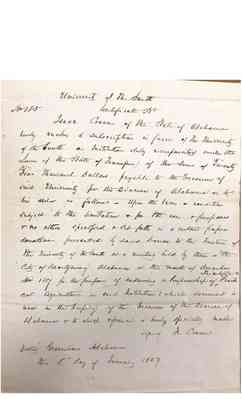 University of the South
No 285
Isaac Croom of the State of Alabama
makes a subscription in favor of the University
of the South an institution duly incorporated under the
Laws of the State of Tennessee of the Sum of Twenty
Five Thousand Dollars payable to the Treasurer of
said University for the Diocese of Alabama or to
his order as follows Upon the terms & conditions
subject to the limitations & for the uses & purposes
& no other specified & set forth in a certain paper
donation presented by said Croom to the Trustees of
the University of the South at a meeting held by them in the
City of Montgomery Alabama in the month of
for the purpose of endowing a Professorship of
in said Institution & which document is
now in the keeping of the Treasurer of the Diocese of
Alabama & to which reference is hereby specially made
I. Croom
Greensboro Alabama
this day of January